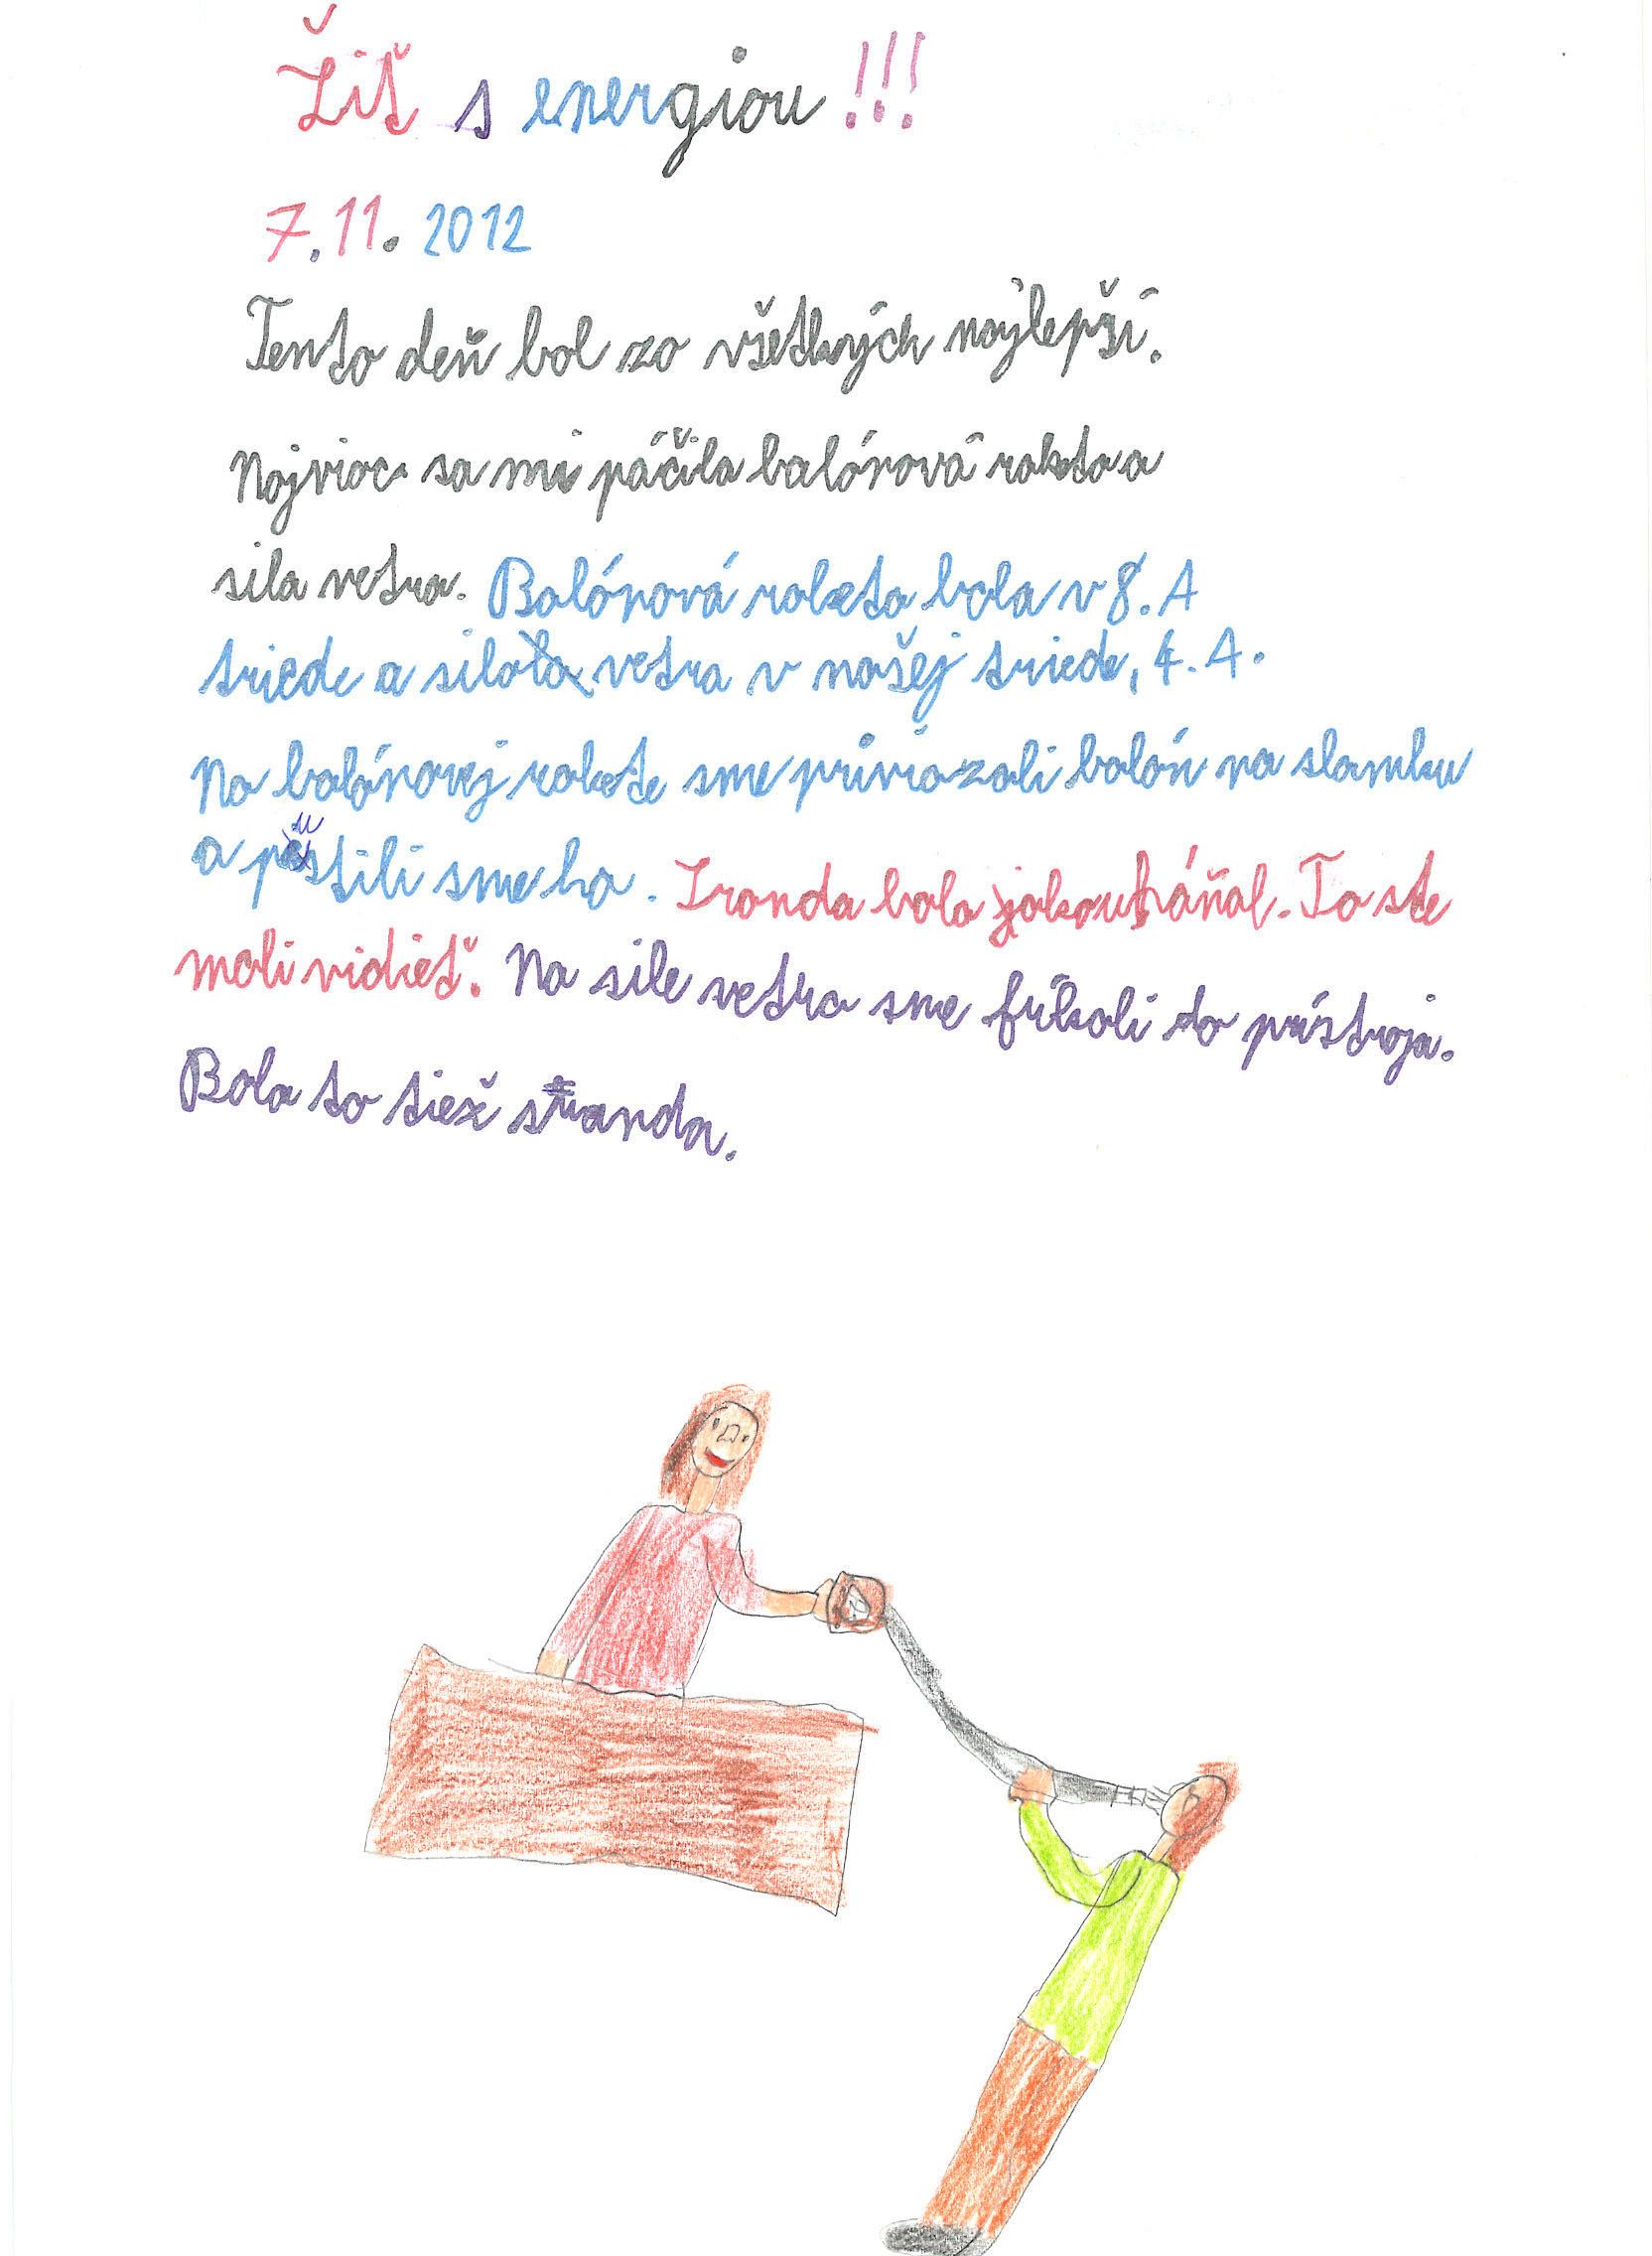 Žiť s energiou!!!
7.11.2012
Tento deň bol zo všetkých najlepší.
Najviac sa mi páčila balónová raketa a
sila vetra. Balónová raketa bola v 8.A
triede a sila vetra v našej triede, 4.A.
Na balónovej rakete sme priviazali balón na slamku
a pustili sme ho. Sranda bola jako uháňal. To ste
mali vidieť. Na sile vetra sme fúkali do prístroja.
Bola to tiež sranda.